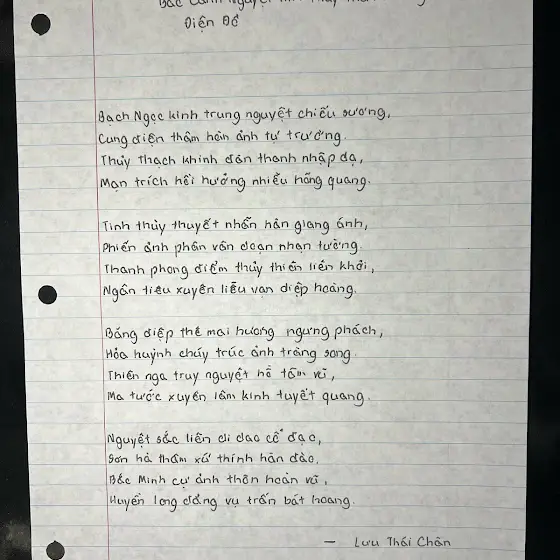 Điện Đế
Bạch Ngọc kinh trung nguyệt chiếu sương,
Cung điện thâm hàn ảnh tự trường.
Thủy thạch khinh đàn thanh nhập dạ,
Mạn trích hồi hưởng nhiễu hồng quang.
Tinh thủy thuyết nhân hàn giang ánh,
Phiến ảnh phân vân đoạn nhạn tường.
Thanh phong điểm thủy thiên liên khởi,
Ngân tiêu xuyên liễu vạn diệp hoàng.
Băng điệp thê mai hương ngưng phách,
Hỏa huỳnh cháy trúc ảnh tràng song.
Thiên nga truy nguyệt hồ tâm vũ,
Ma tước xuyên lâm kinh tuyết quang.
Nguyệt sắc liên di dao cổ đạo,
Sơn hà thâm xứ thính hàn đào.
Bắc Minh cự ảnh thôn hoàn vũ,
Huyền long đằng vụ trấn bát hoang.
— Lưu Thái Chân